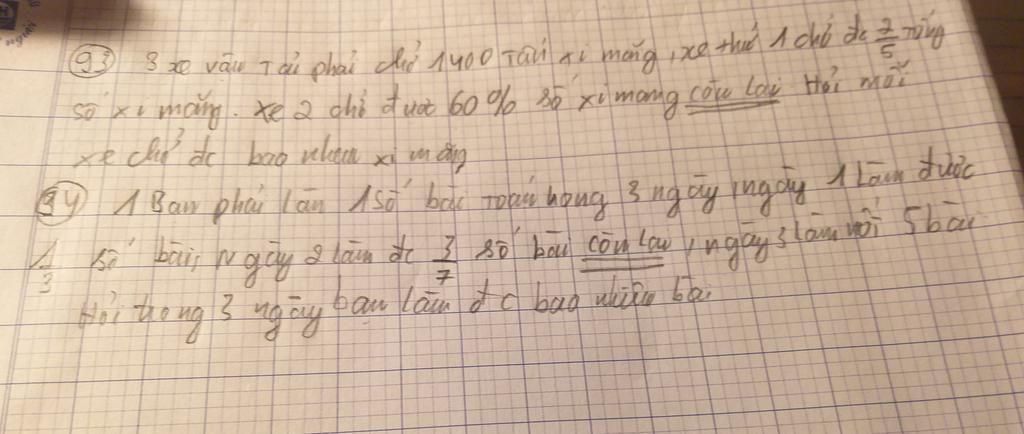 93 3 xe vận tải phải chở 1400 tấn xi măng, xe thứ 1 chở đc 2/5 tổng
số xi măng. xe 2 chở được 60% số xi mang còn lại Hỏi mỗi
xe chở đc bao nhieu xi măng
94 1 Bạn phải làm 1 số bài toán trong 3 ngày, ngày 1 làm được
1/3 số bài, Ngày 2 làm đc 3/7 số bài còn lại, ngày 3 làm nốt 5 bài
Hỏi trong 3 ngày bạn làm đc bao nhiêu bài